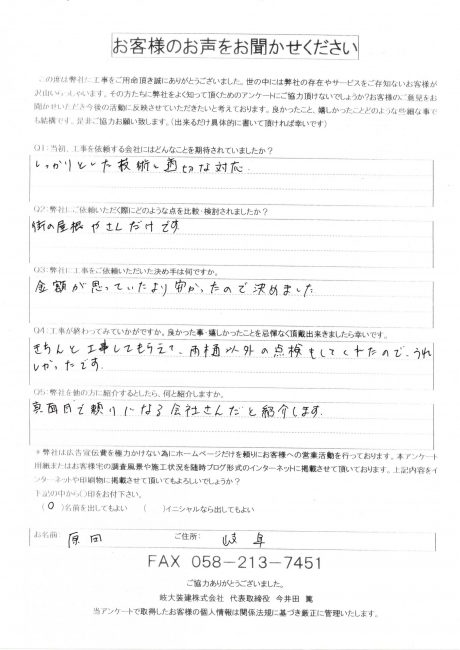 お客様のお声をお聞かせください
この度は弊社に工事をご用命頂き誠にありがとうございました。世の中には弊社の存在やサービスをご存知ないお客様が
沢山いらっしゃいます。その方たちに弊社をよく知って頂くためのアンケートにご協力頂けないでしょうか?お客様のご意見をお
聞かせいただき今後の活動に反映させていただきたいと考えております。良かったこと、嬉しかったことどのような些細な事で
も結構です、是非ご協力お願い致します。(出来るだけ具体的に書いて頂ければ幸いです)
Q1:当初、工事を依頼する会社にはどんなことを期待されていましたか?
しっかりとした技術と適切な対応.
Q2:弊社にご依頼いただく際にどのような点を比較・検討されましたか?
街の屋根やさんだけです
Q3:弊社に工事をご依頼いただいた決め手は何ですか。
金額が思っていたより安かったので決めました
Q4:工事が終わってみていかがですか。良かった事・嬉しかったことを忌憚なく頂戴出来きましたら幸いです。
きちんと工事してもらえて、雨樋以外の点検もしてくれたので、うれ
しかったです.
Q5:弊社を他の方に紹介するとしたら、何と紹介しますか。
真面目で頼りになる会社さんだと紹介します.
*弊社は広告宣伝費を極力かけない為にホームページだけを頼りにお客様への営業活動を行っております。本アンケート
用紙またはお客様宅の調査風景や施工状況を随時ブログ形式のインターネットに掲載させて頂いております。上記内容をイ
ンターネットや印刷物に掲載させて頂いてもよろしいでしょうか?
下記の中から○印をお付下さい。
(O)名前を出してもよい ( )イニシャルなら出してもよい
お名前: 原田 ご住所: 岐阜
FAX 058-213-7451
ご協力ありがとうございました。
岐大装建株式会社 代表取締役 今井田 篤
当アンケートで取得したお客様の個人情報は関係法規に基づき厳正に管理いたします。